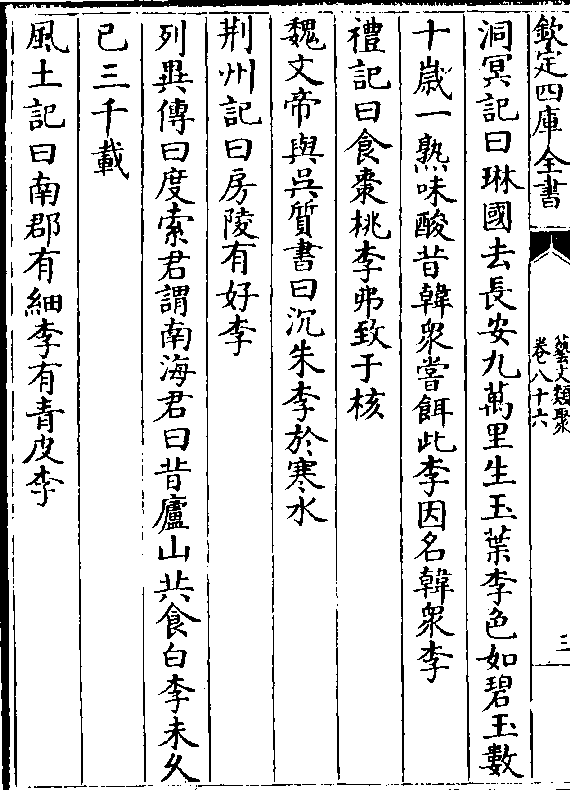 欽定四庫全書
藝文類聚
卷八十六
三
洞冥記曰琳國去長安九萬里生玉葉李色如碧玉數
十歳一熟味酸昔韓衆嘗餌此李因名韓衆李
禮記曰食棗桃李弗致于核
魏文帝與吳質書曰沉朱李於寒水
荆州記曰房陵有好李
列異傳曰度索君謂南海君曰昔廬山共食白李未久
已三千載
風土記曰南郡有細李有青皮李